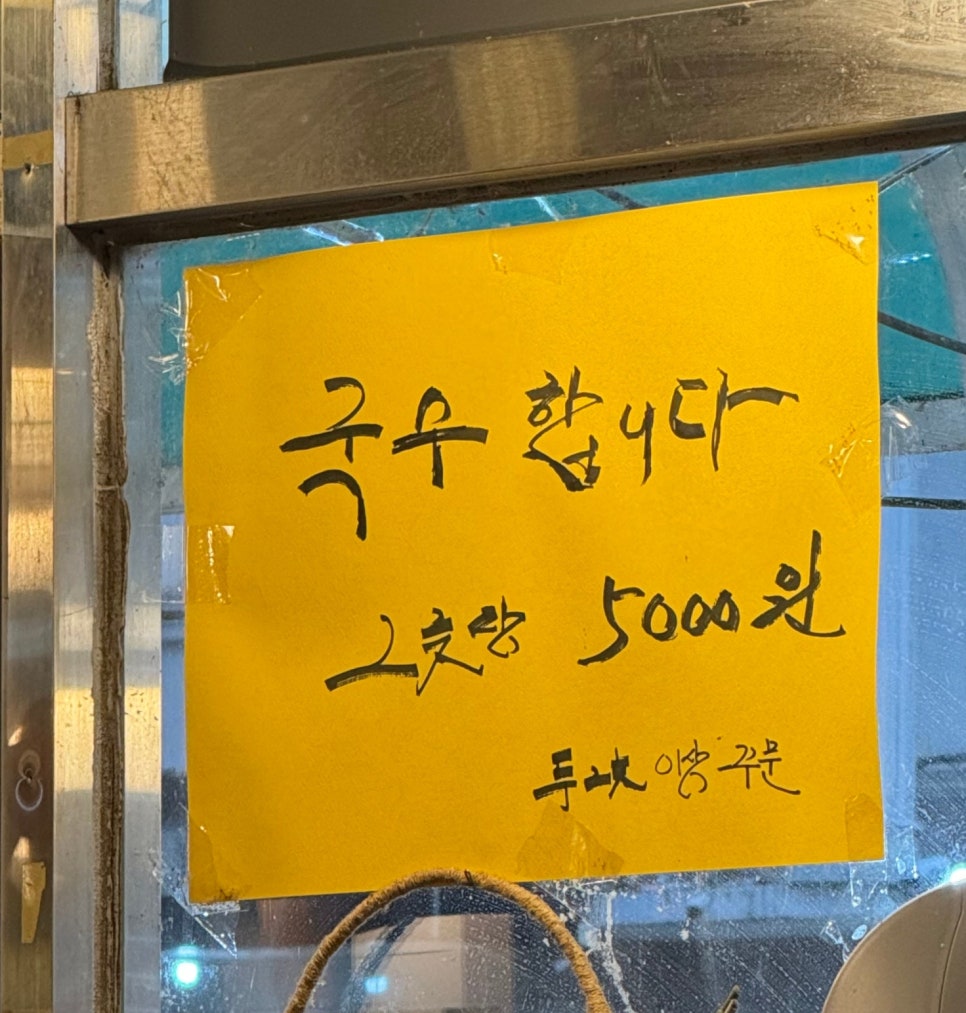 국수 합니다
그릇당 5000원
두그릇 이상 주문